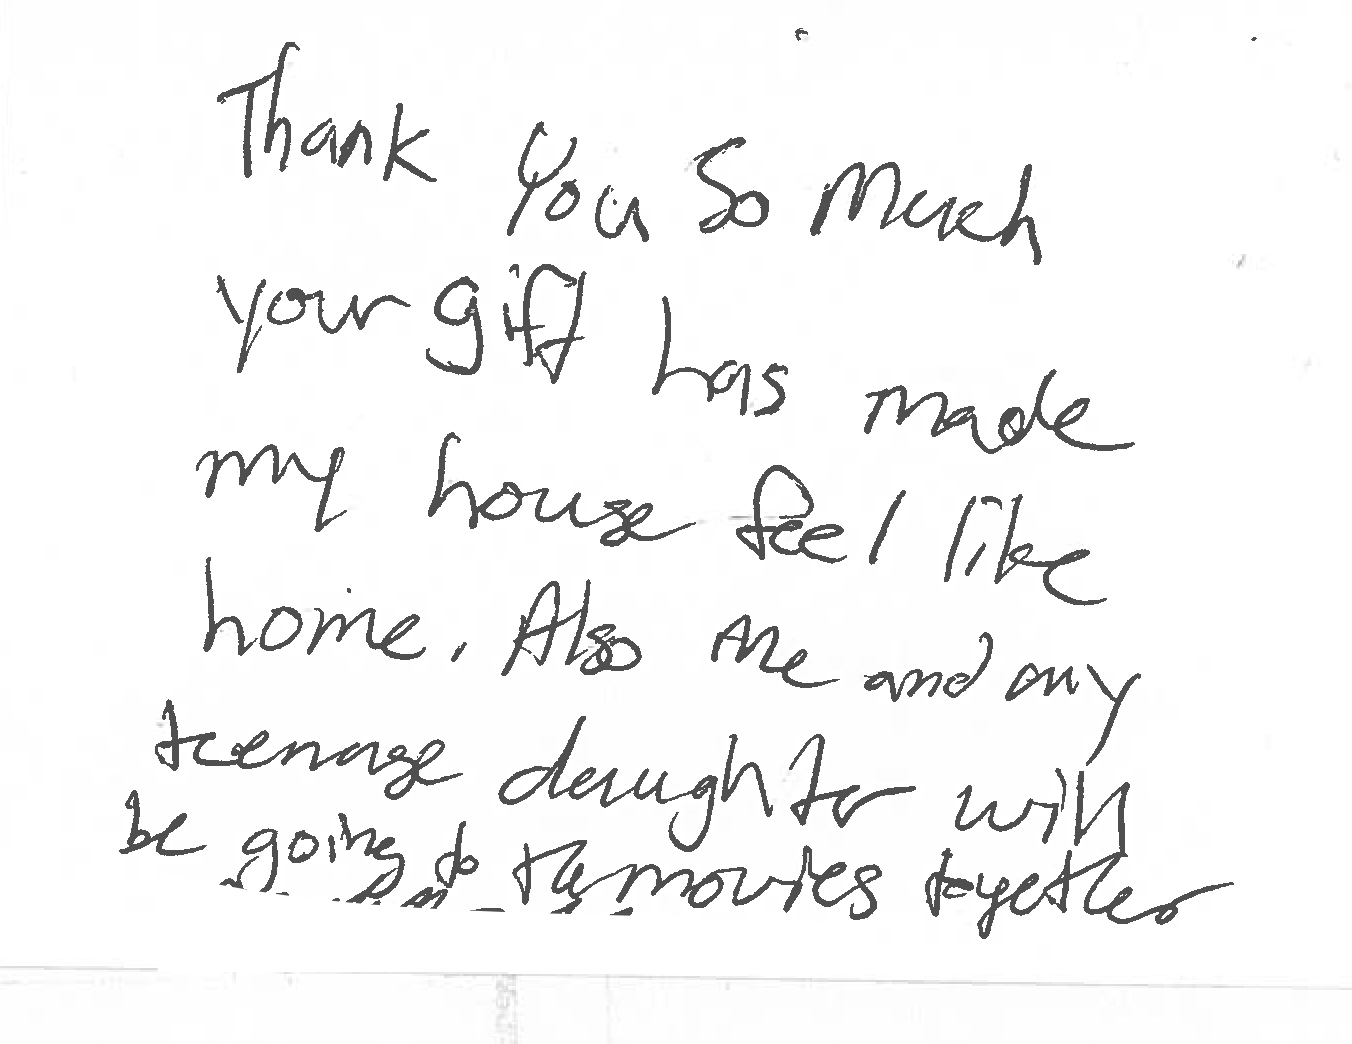 Thank You So Much
your gift has made
my house feel like
home. Also Me and my
teenage daughter will
be going to the movies together